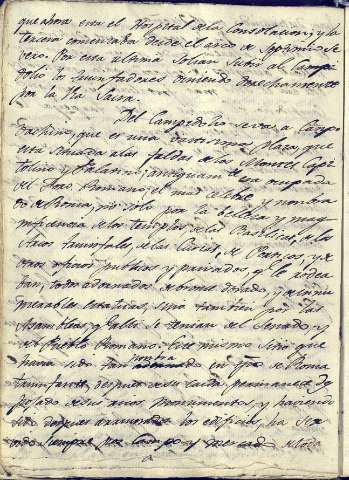 que ahora esta el Hospital de la Consolacion; y la
tercera comenzada desde el arco de Septimio Se
vero. Por esta ultima solian subir al Campi
dolio los triunfadores viniendo derechamente
por la Via Sacra.
Del Campidolio se va a Campo
Vachino, que es una Plaza, que
està situada a las faldas de los Montes Capi
tolino y Palatino; antiguam.te era
el Foro Romano, el mas celebre y nombra
do de Roma, no solo por la belleza y mag
nificencia de los templos, de las Basilicas, de los
Arcos triunfales, de las Curias, de y de
otros edificios publicos y privados, q.e le rodea
ban, todos adornados de bronce dorado, y de innu
merables estatuas, sino tambien por las
Asambleas, q.e alli se tenian del Senado y
del Pueblo Romano. Este mismo sitio que
havia sido tan en tpo de Roma
triunfante, despues de su caida, permanecio des
pojado de sus Monumentos, y haviendo
sido despues arruinados los edificios, ha ser
vido siempre por Campo y mercado de todo